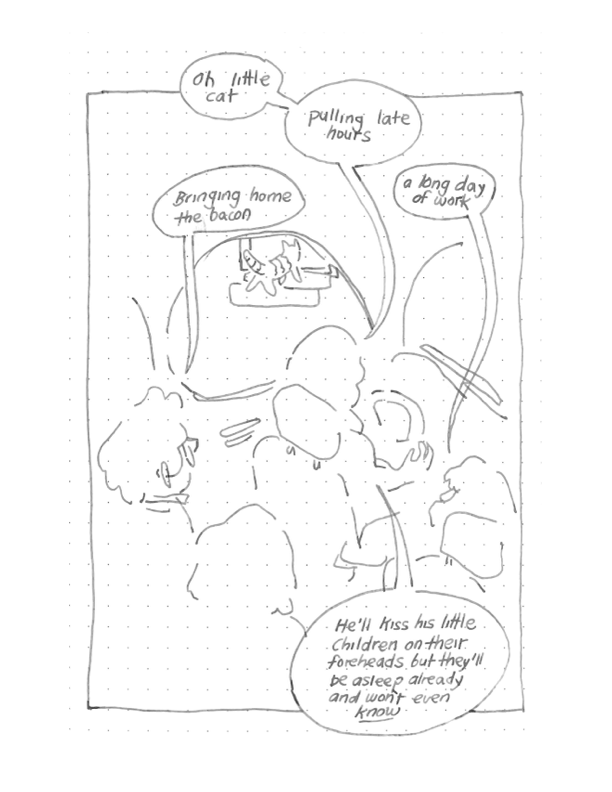 Oh little
cat
pulling late
hours
Bringing home
the bacon
a long day
of work
He'll kiss his little
children on their
foreheads but they'll
be asleep already
and won't even
know